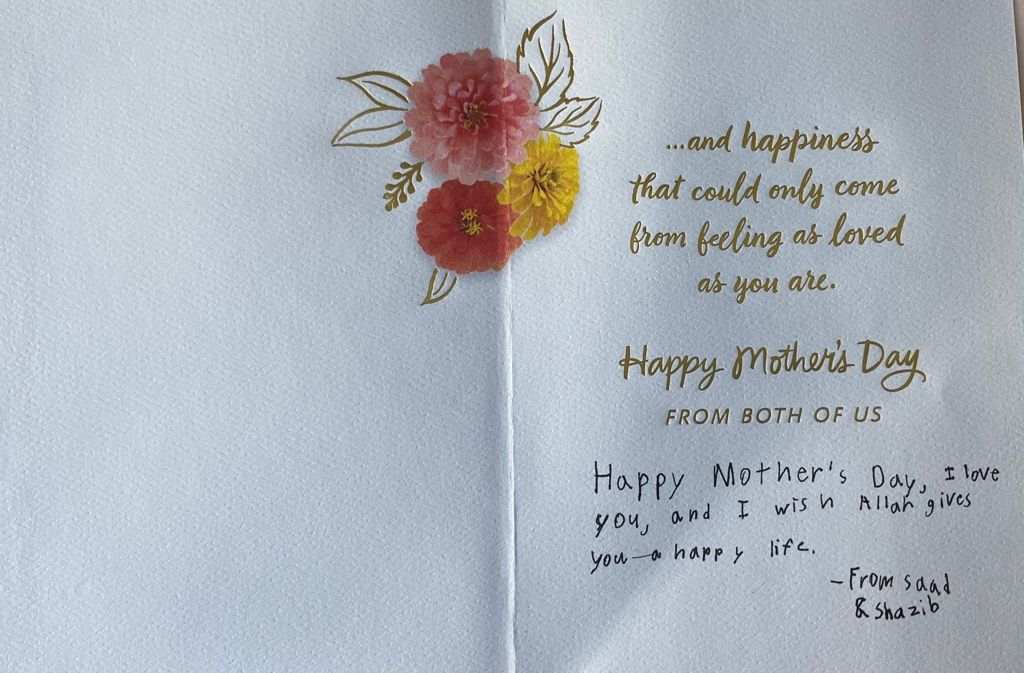 ...and happiness
that could only come
from feeling as loved
as you are.
Happy Mother's Day
FROM BOTH OF US
Happy Mother's Day, I love
you, and I wish Allah gives
you a happy life.
- From saad
& shazib